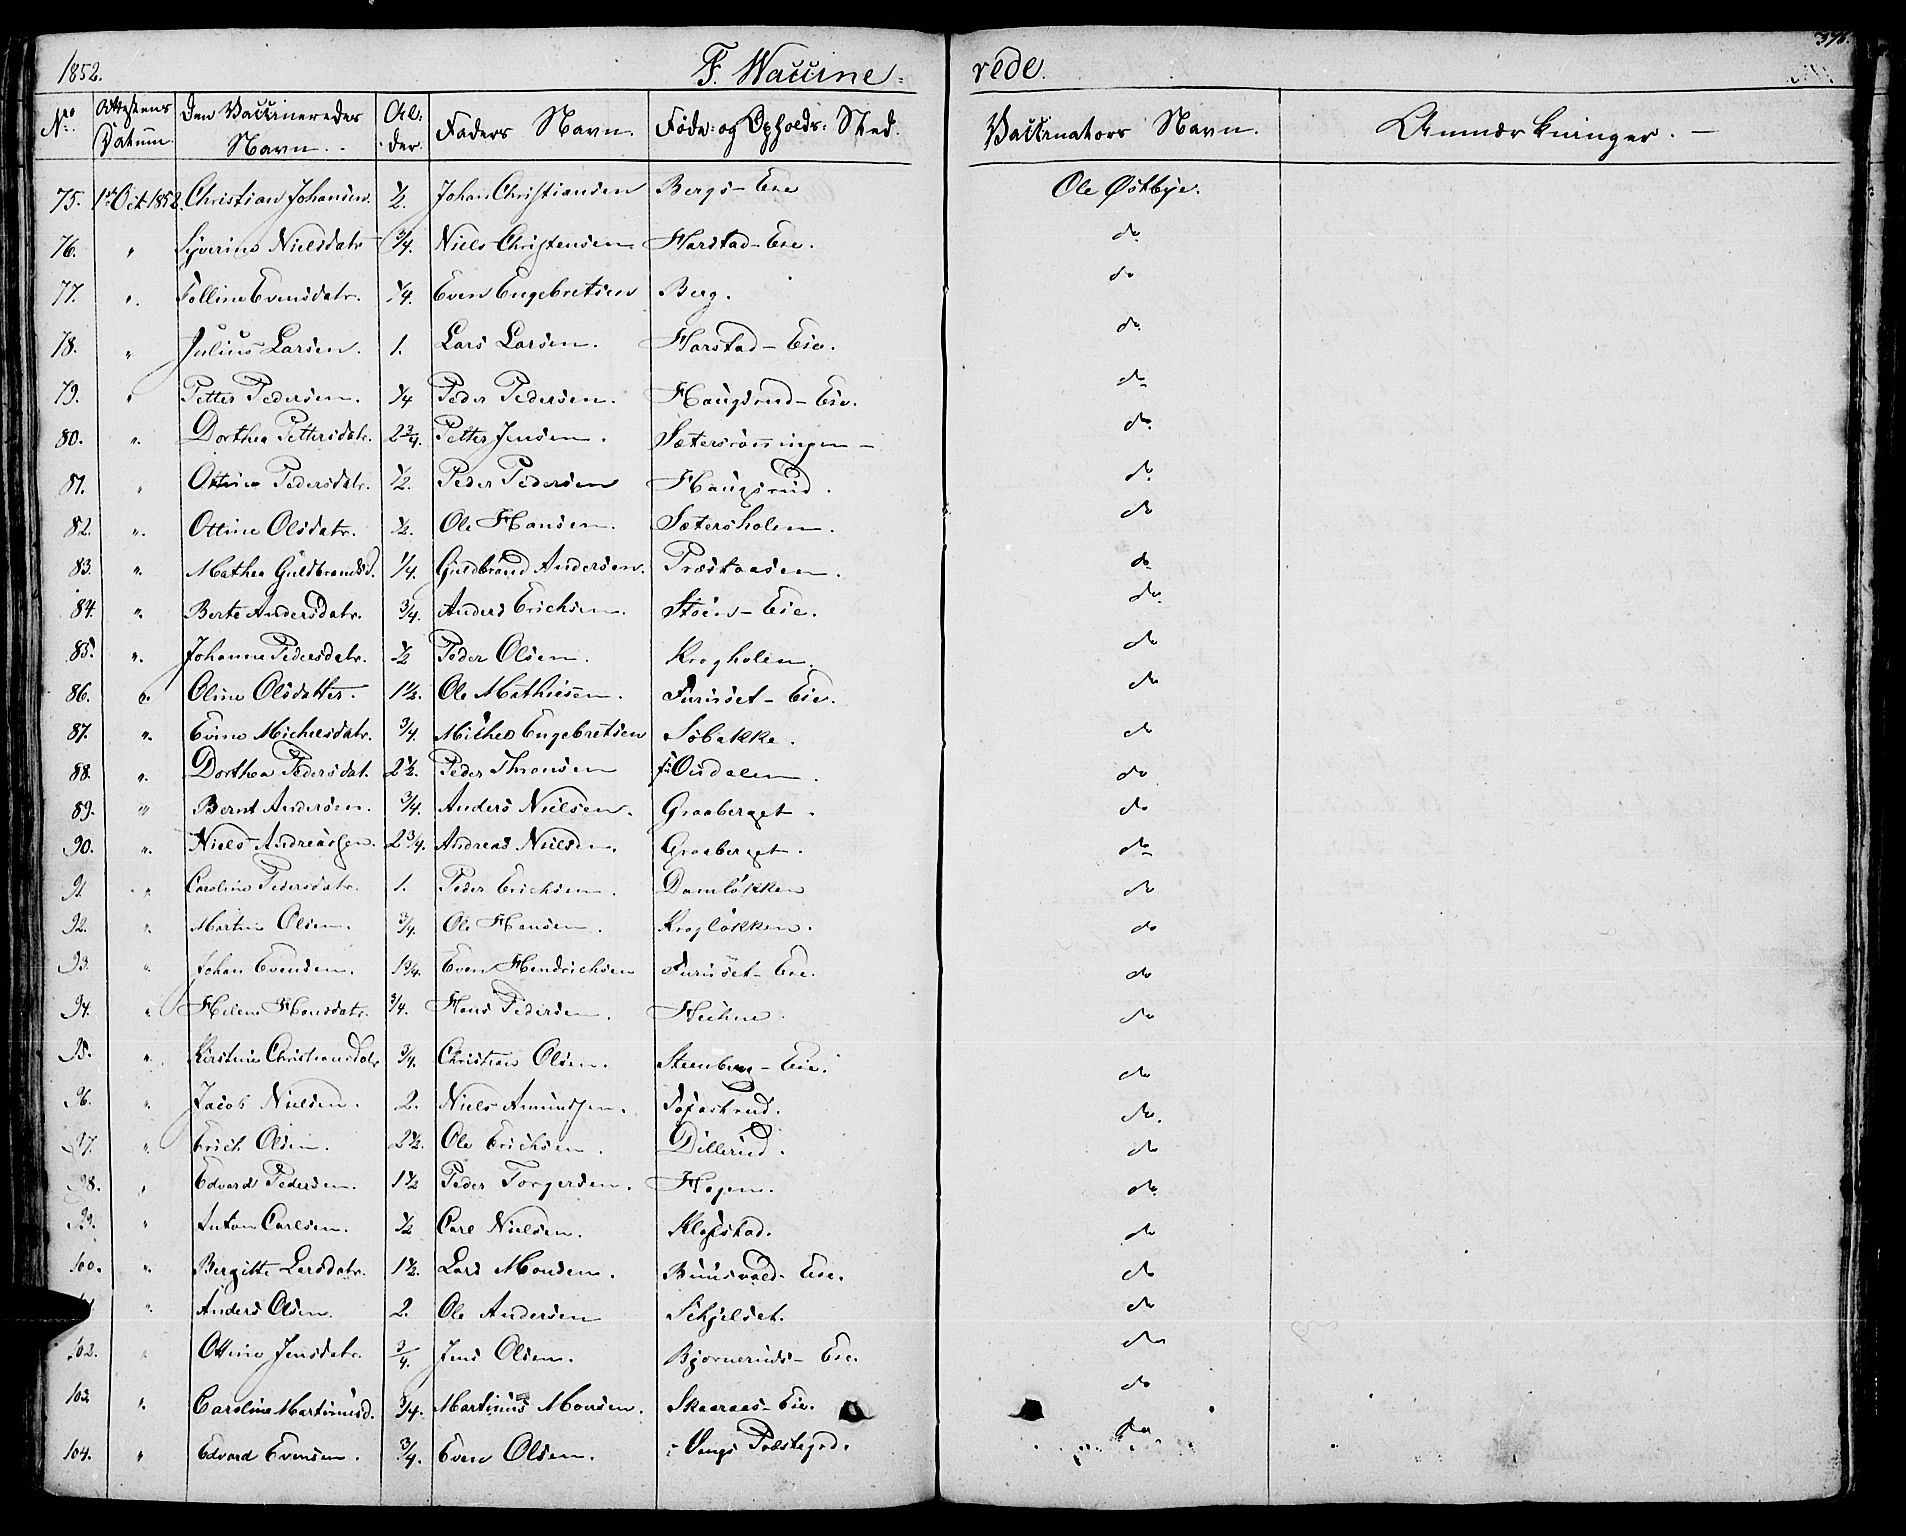 1852.
F. Waccine=
rede.
376.
Nro Attestens Datum. Den Vaccineredes Navn. Al: der. Faders Navn. Føde= og Opholds= Sted. Vaccinators Navn. Anmærkninger. —
75. 1st Oct. 1852. Christian Johansen. 1/2. Johan Christiansen Bergs-Eie Ole Østbye.
76. " Syverine Nielsdatr 3/4. Niels Christensen Harstad-Eie. do
77. " Evensdatr. 1/4. Even Engebretsen Berg. do
78. " Julius Larsen. 1. Lars Larsen. Harstad-Eie. do
79. " Petter Pedersen. 1/4 Peder Pedersen. Haugsrud-Eie. do
80. " Dorthea Pettersdatr. 2 3/4. Petter Jensen. do
81. " Ottine Pedersdatr. 1/2. Peder Pedersen Haugsrud. do
82. " Ottine Olsdatr. 1/2. Ole Hansen. Sætersholen. do
83. " Mathea Guldbrandsd. 1/4. Guldbrand Andersen. Præstaasen. do
84. " Berte Andersdatr. 3/4. Anders Erichsen. Eie. do
85. " Johanne Pedersdatr. 1/2 Peder Olsen. Krogholen. do
86. " Oline Olsdatter. 1 1/2. Ole Mathiesen. Furuset-Eie. do
87. " Evine Michelsdatr. 3/4. Michel Engebretsen Søbakke. do
88. " Dorthea Pedersdat. 2 1/2. Peder Thronsen i Osdalen. do
89. " Bernt Andersen. 3/4. Anders Nielsen. Graaberget. do
90. " Niels Andreassen. 2 3/4. Andreas Nielsen. Graaberget. do
91. " Caroline Pedersdatr. 1. Peder Erichsen. Damløkken do
92. " Martin Olsen. 3/4. Ole Hansen. Krogløkken. do
93. " Johan Evensen. 1 3/4. Even Hendrichsen Furuset-Eie. do
94. " Helene Hansdatr. 3/4. Hans Pedersen. do
95. " Kirstine Christiansdatr 3/4. Christian Olsen. Steenberg-Eie. do
96. " Jacob Nielsen. 2. Niels Amundsen. do
97. " Erich Olsen. 2 1/2. Ole Erichsen. Dillerud. do
98. " Edvard Pedersen. 1 1/2 Peder Torgersen. Hagen. do
99. " Anton Carlsen. 1/2 Carl Nielsen. Klæstad. do
100. " Bergitte Larsdatr. 1 1/2. Lars Monsen. Eie. do
" Anders Olsen. 2. Ole Andersen Schjelset. do
102. " Ottine Jensdatr. 3/4. Jens Olsen. Bjørneruds-Eie. do
103 " Caroline Martinusd. 3/4. Martinus Monsen. Skaaraas-Eie. do
104. " Edvard Evensen. 3/4. Even Olsen. i Vangs Præstegd. do